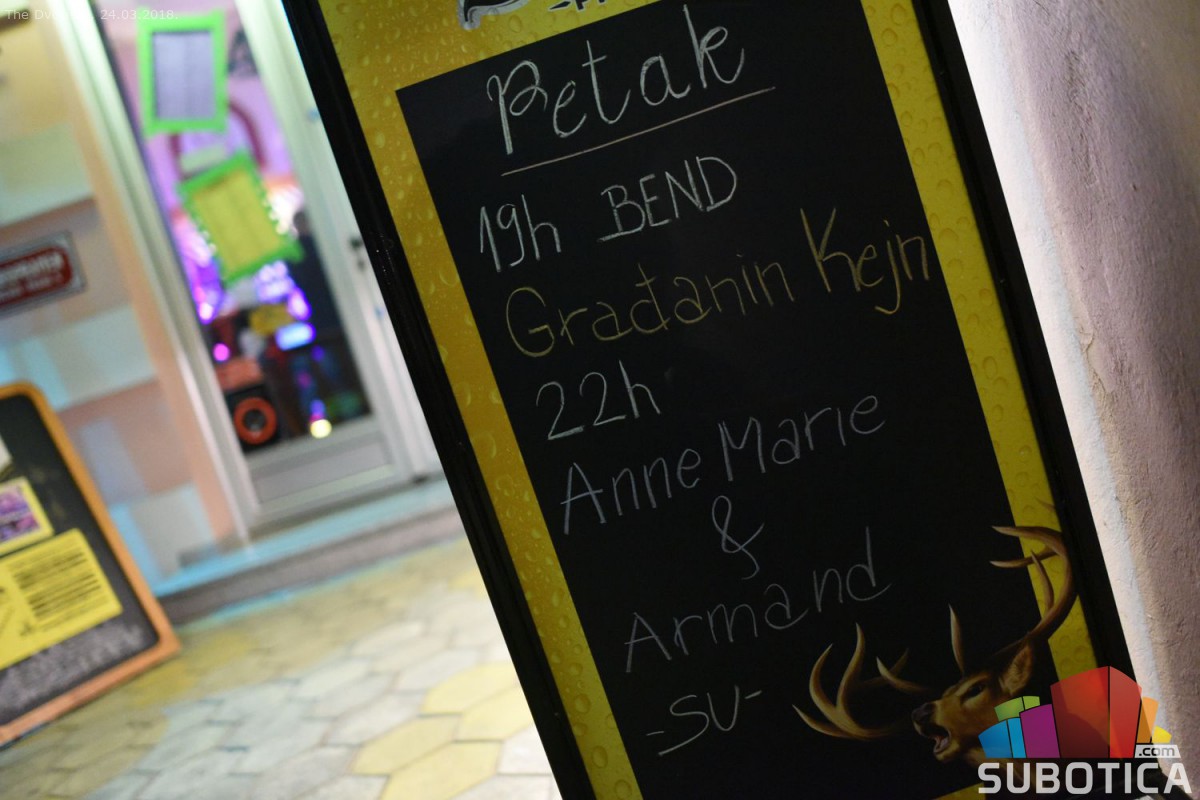 24.03.2018.
Petak
19h BEND
Građanin Kejn
22h
Anne Marie
&
Armand
-SU-
.com
SUBOTICA